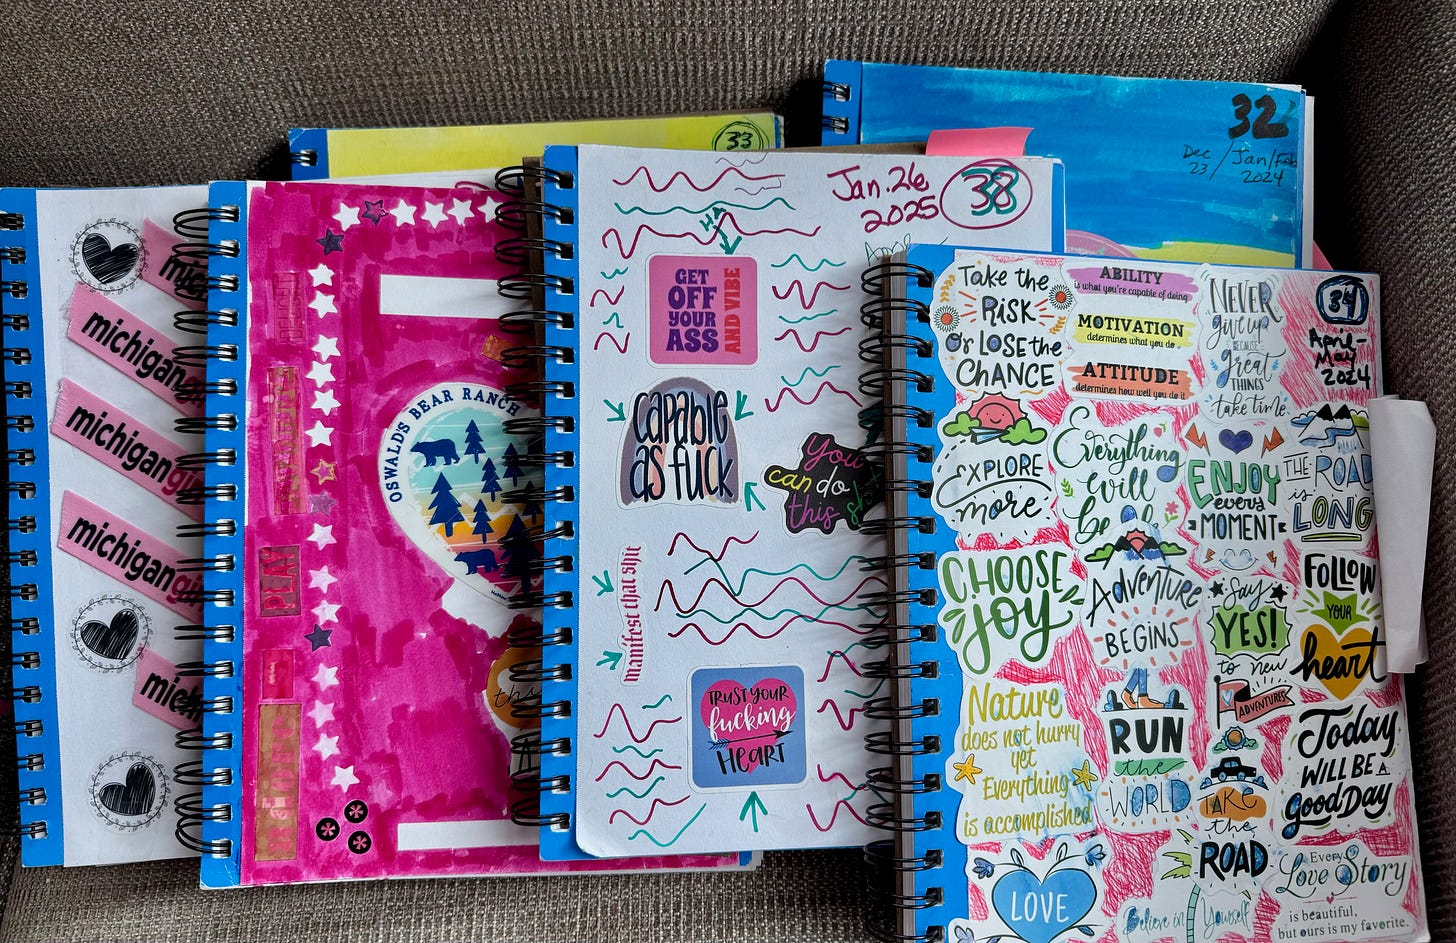 33
32
Dec 23 / Jan/Feb 2024
michigan
michigan
michigan
OSWALD'S BEAR RANCH
PLAY
Jan. 26
2025
38
HA
GET
OFF
YOUR
ASS
AND VIBE
CAPABLE
as fuck
You
can do
this
manifest that shit
TRUST YOUR
fucking
HEART
34
April-
May
2024
Take the
RISK
OR LOSE the
CHANCE
ABILITY
is what you're capable of doing
MOTIVATION
determines what you do.
ATTITUDE
determines how well you do it
NEVER
give up
BECAUSE
great
THINGS
take time
EXPLORE
more
Everything
will
be
ENJOY
every
MOMENT
THE ROAD
is
LONG
CHOOSE
joy
Adventure
BEGINS
Say
YES!
to new
ADVENTURES
FOLLOW
YOUR
heart
Nature
does not hurry
yet
Everything
is accomplished
RUN
the
WORLD
TAKE
the
ROAD
Today
WILL BE A
Good DAY
LOVE
Believe in Yourself
Every
Love Story
is beautiful,
but ours is my favorite.